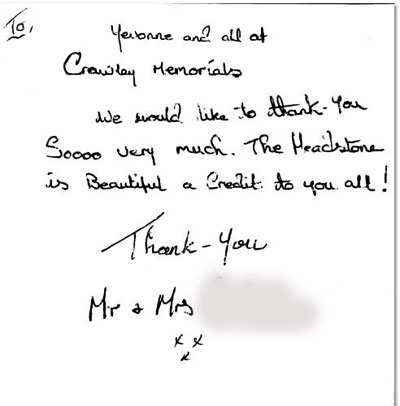 To,
Yevonne and all at
Crawley Memorials
We would like to thank-You
Soooo very much. The Headstone
is Beautiful a Credit to you all!
Thank-You
Mr & Mrs
x x
x